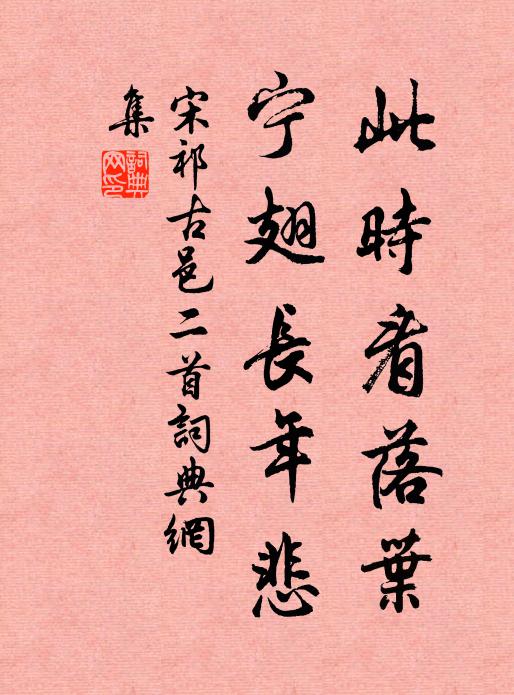 此時看落葉
宁翅長年悲
宋祁古邑二首詞典網
集
詞典网印